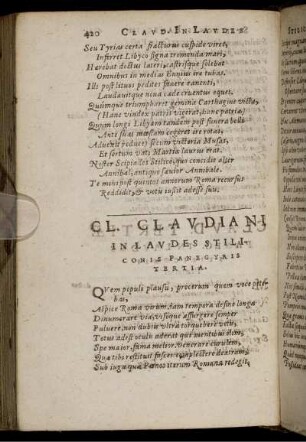 420 CLAVD. IN LAVDES
Seu Tyrias certa fracturus cuspide vires,
Inferret Libyco signa tremenda mari,
Hærebat doctus lateri, castrisque solebat
Omnibus in medias Ennius ire tubas.
Illi post lituos pedites favere canenti,
Laudavitque nova cæde cruentus eques.
Quumque triumpharet gemina Carthagine victa,
(Hanc vindex patri vicerat, hanc patriæ)
Quum longi Libyam tandem post funera belli
Ante suas mœstam cogeret ire rotas,
Advexit reduces secum victoria Musas,
Et sertum vati Martia laurus erat.
Noster Scipiades Stilico, quo concidit alter
Annibal, antiquo sævior Annibale.
Te mihi post quintos annorum Roma recursus
Reddidit, & votis iussit adesse suis.
CL. CLAVDIANI
IN LAVDES STILI-
CONIS PANEGYRIS
TERTIA.
QVem populi plausu, procerum quem voce petebas,
Aspice Roma virum. iam tempora desine longæ
Dinumerare viæ, visoque assurgere semper
Pulvere. non dubiis ultra torquebere votis,
Totus adest oculis, aderat qui mentibus olim,
Spe maior, fama melior. venerare curulem,
Quæ tibi restituit fasces: complectere dextram,
Sub iuga quæ Pœnos iterum Romana redegit,